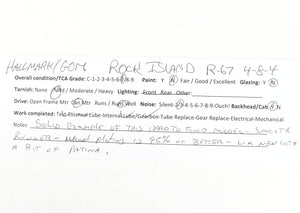 HALLMARK/GOM ROCK ISLAND R-67 4-8-4
Overall condition/TCA Grade: C-1-2-3-4-5-6-7-8-9 Paint: Y N Fair / Good / Excellent Glazing: Y N
Tarnish: None Mild / Moderate / Heavy Lighting: Front Rear Other
Drive: Open Frame Mtr Can Mtr Runs / Runs Well Noise: Silent 2-3-4-5-6-7-8-9-Ouch! Backhead/Cab: Y N
Work completed: Test-External Lube-Internal Lube/Gearbox-Tube Replace-Gear Replace-Electrical-Mechanical
NOTES: SOLID EXAMPLE OF THIS HARD TO FIND MODEL - SMOOTH
RUNNER - NICKEL PLATING IS 95% OR BETTER - LIKE NEW WITH
A BIT OF PATINA.